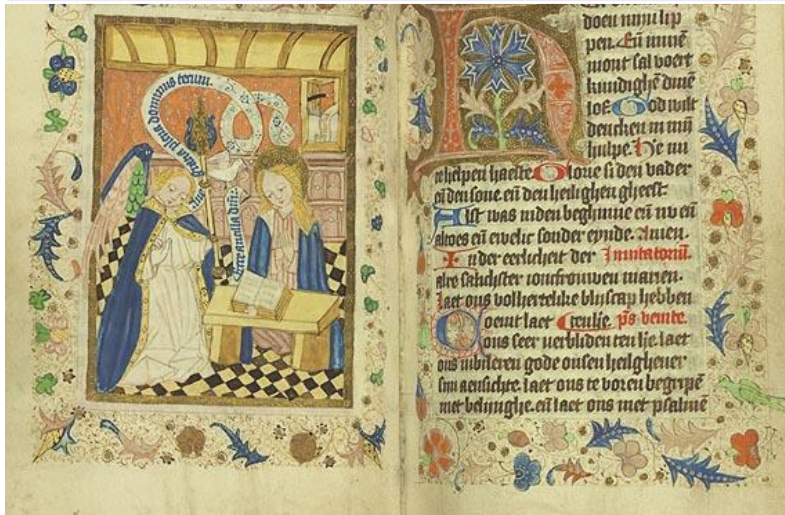 Ave gratia plena dominus tecum.
Ecce ancilla dni.
H doen mijn lip
pen. En mine
mont sal voert
kundighe dine
lof. God wilt
dencken in mijn
hulpe. He mi
te helpen haeste Glorie si den vader
en den sone en den heilighen gheest
Alst was inden beghinne en nv en
altoes en ewelic sonder eynde. Amen.
In der eerlicheit der Inuitatorium.
alre salichster ioncfrouwen marien.
laet ons volhertelike bliscap hebben
Coemt laet ps venite.
ons seer verbliden ten laet
ons iubileren gode onsen heilgheuer
sijn aensichte. laet ons te voren begripe
met belijnghe. en laet ons met psalme